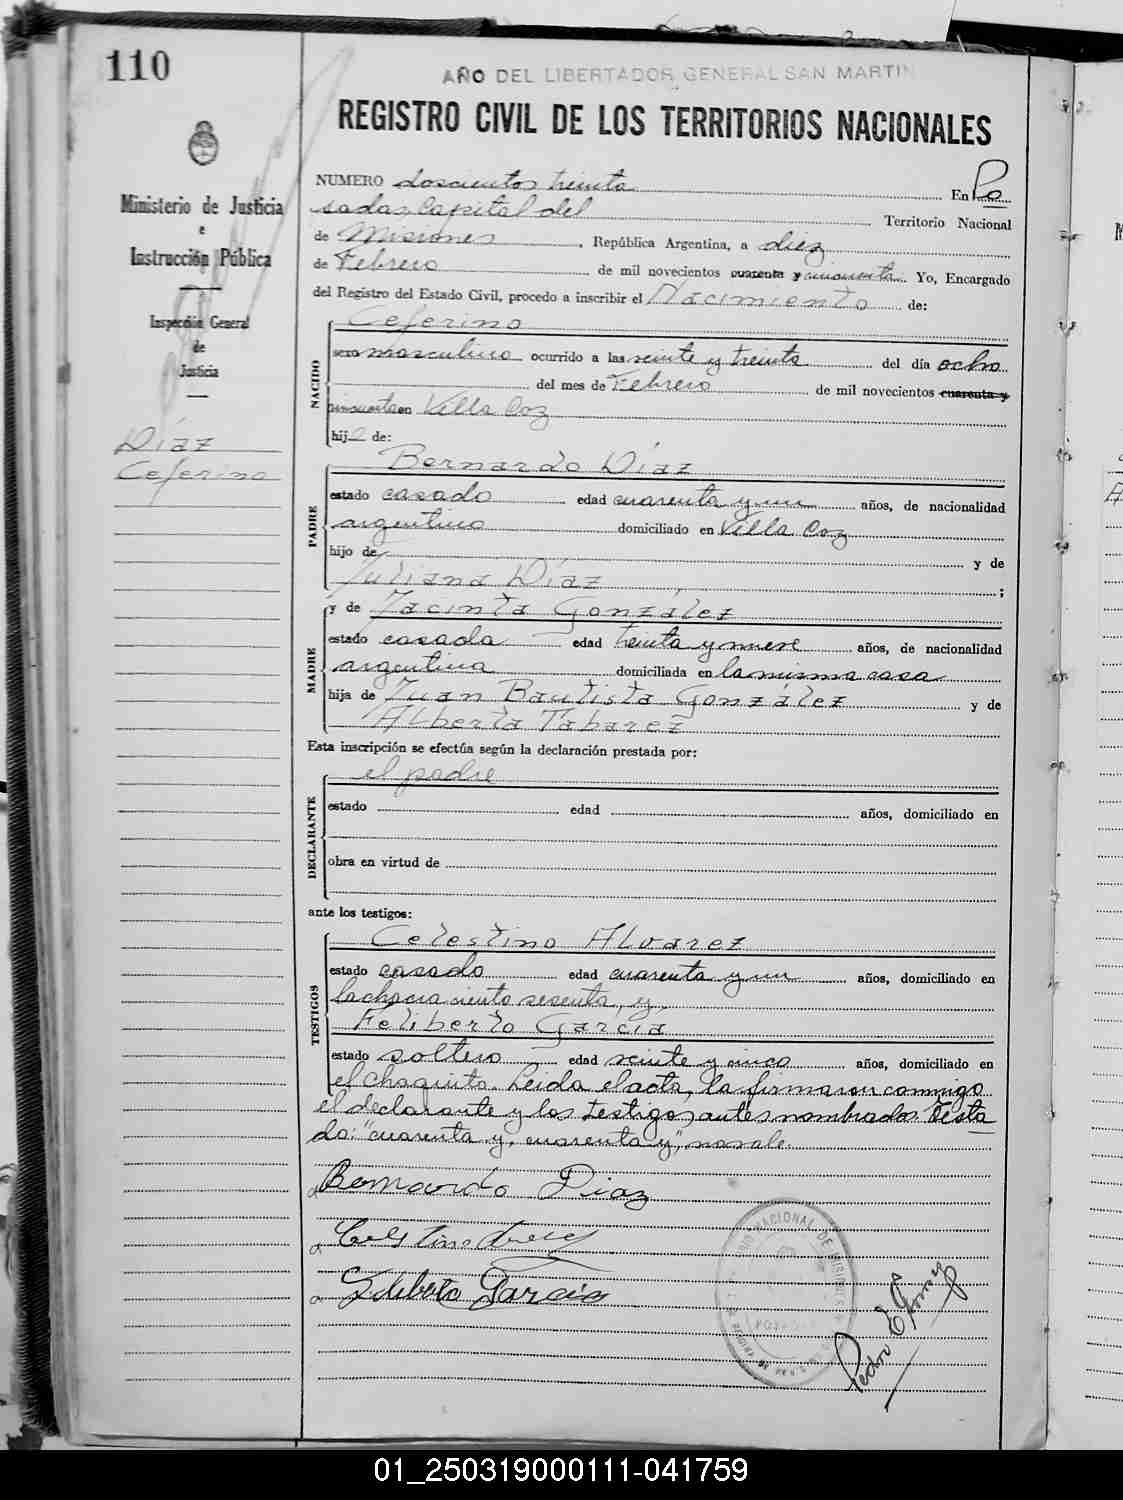 110
AÑO DEL LIBERTADOR GENERAL SAN MARTIN
REGISTRO CIVIL DE LOS TERRITORIOS NACIONALES
Ministerio de Justicia
e
Instrucción Pública
Inspección General
de
Justicia
Díaz
Ceferino
NUMERO doscientos treinta En Po
sadas, Capital del Territorio Nacional
de Misiones, República Argentina, a diez
de Febrero de mil novecientos cuarenta y cincuenta. Yo, Encargado
del Registro del Estado Civil, procedo a inscribir el Nacimiento de:
NACIDO
Ceferino
sexo masculino ocurrido a las veinte y treinta del día ocho
del mes de Febrero de mil novecientos cuarenta y
cincuenta en Villa Coz
hijo de:
PADRE
Bernardo Díaz
estado casado edad cuarenta y un años, de nacionalidad
argentino domiciliado en Villa Coz
hijo de y de
Juliana Díaz ;
MADRE
y de Jacinta González
estado casada edad treinta y nueve años, de nacionalidad
argentina domiciliada en la misma casa
hija de Juan Bautista González y de
Alberta Tabarez
Esta inscripción se efectúa según la declaración prestada por:
DECLARANTE
el padre
estado edad años, domiciliado en
obra en virtud de
ante los testigos:
TESTIGOS
Celestino Alvarez
estado casado edad cuarenta y un años, domiciliado en
la chacra ciento sesenta, y
Feliberto García
estado soltero edad veinte y cinco años, domiciliado en
el Chaquito. Leida el acta, la firmaron conmigo
el declarante y los testigos antes nombrados. Testa
do: "cuarenta y, cuarenta y", no vale.
Bernardo Diaz
Garcia
Pedro E. Gomez
01_250319000111-041759